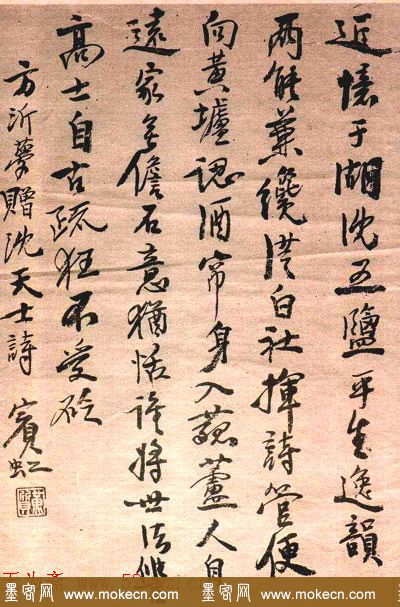 近憶于湖沈五鹽平生逸韻
兩能兼纔從白社揮詩管便
向黃壚認酒帘身入菰蘆人自
遠家無儋石意猶恬誰將世法繩
高士自古疏狂不受砭
方沂夢贈沈天士詩 賓虹
墨客网 www.mokecn.com 墨客网 www.mokecn.com